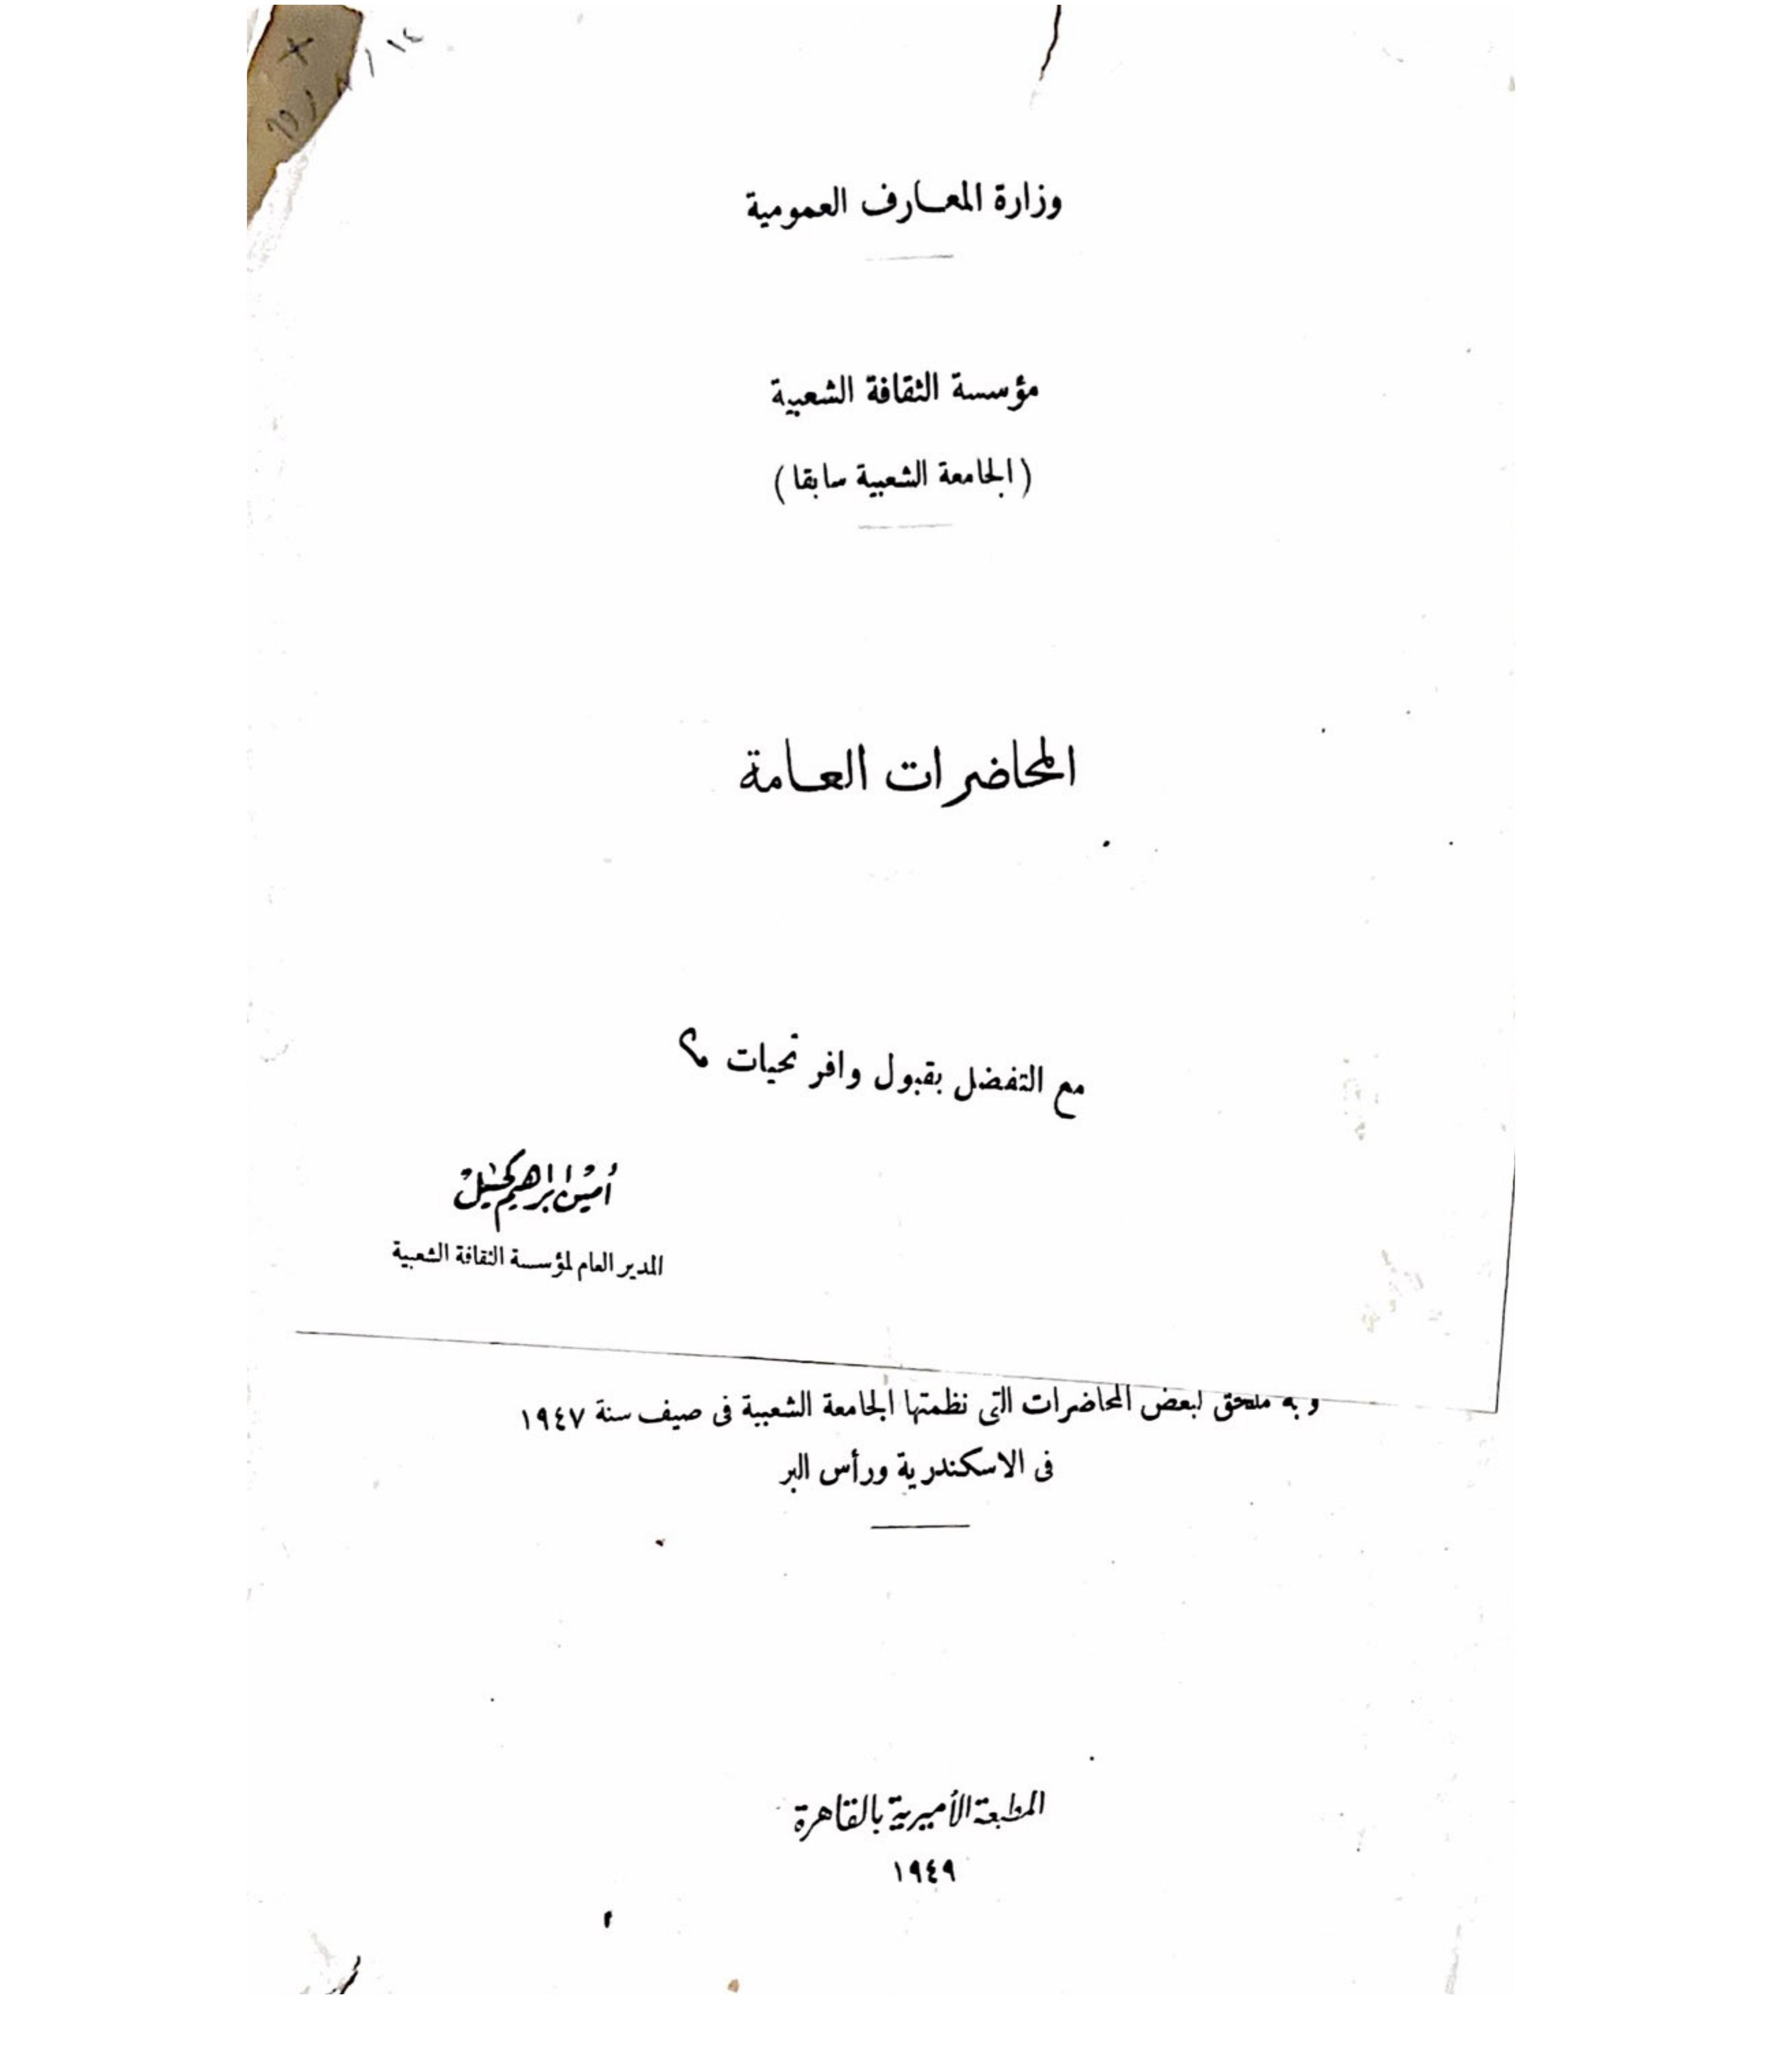 وزارة المعارف العمومية
مؤسسة الثقافة الشعبية
(الجامعة الشعبية سابقا)
المحاضرات العامة
مع التفضل بقبول وافر تحيات
أمين إبراهيم كحيل
المدير العام لمؤسسة الثقافة الشعبية
وبه ملحق لبعض المحاضرات التى نظمتها الجامعة الشعبية فى صيف سنة ١٩٤٧
فى الاسكندرية ورأس البر
المطبعة الأميرية بالقاهرة
١٩٤٩